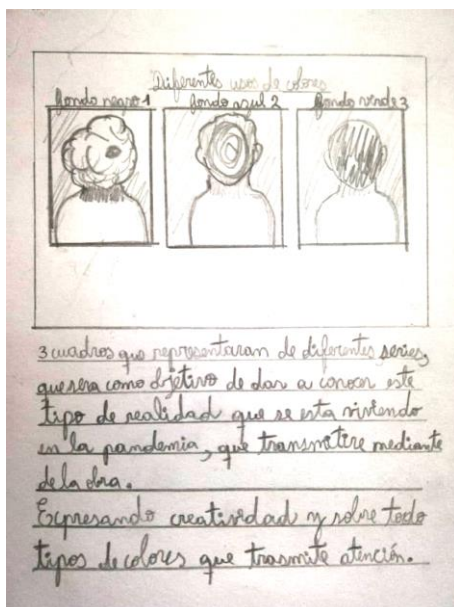 Diferentes usos de colores
fondo negro 1 fondo azul 2 fondo verde 3
3 cuadros que representaran de diferentes series,
que sera como objetivo de dar a conocer este
tipo de realidad que se esta viviendo
en la pandemia, que transmitire mediante
de la obra.
Expresando creatividad y sobre todo
tipos de colores que trasmite atención.